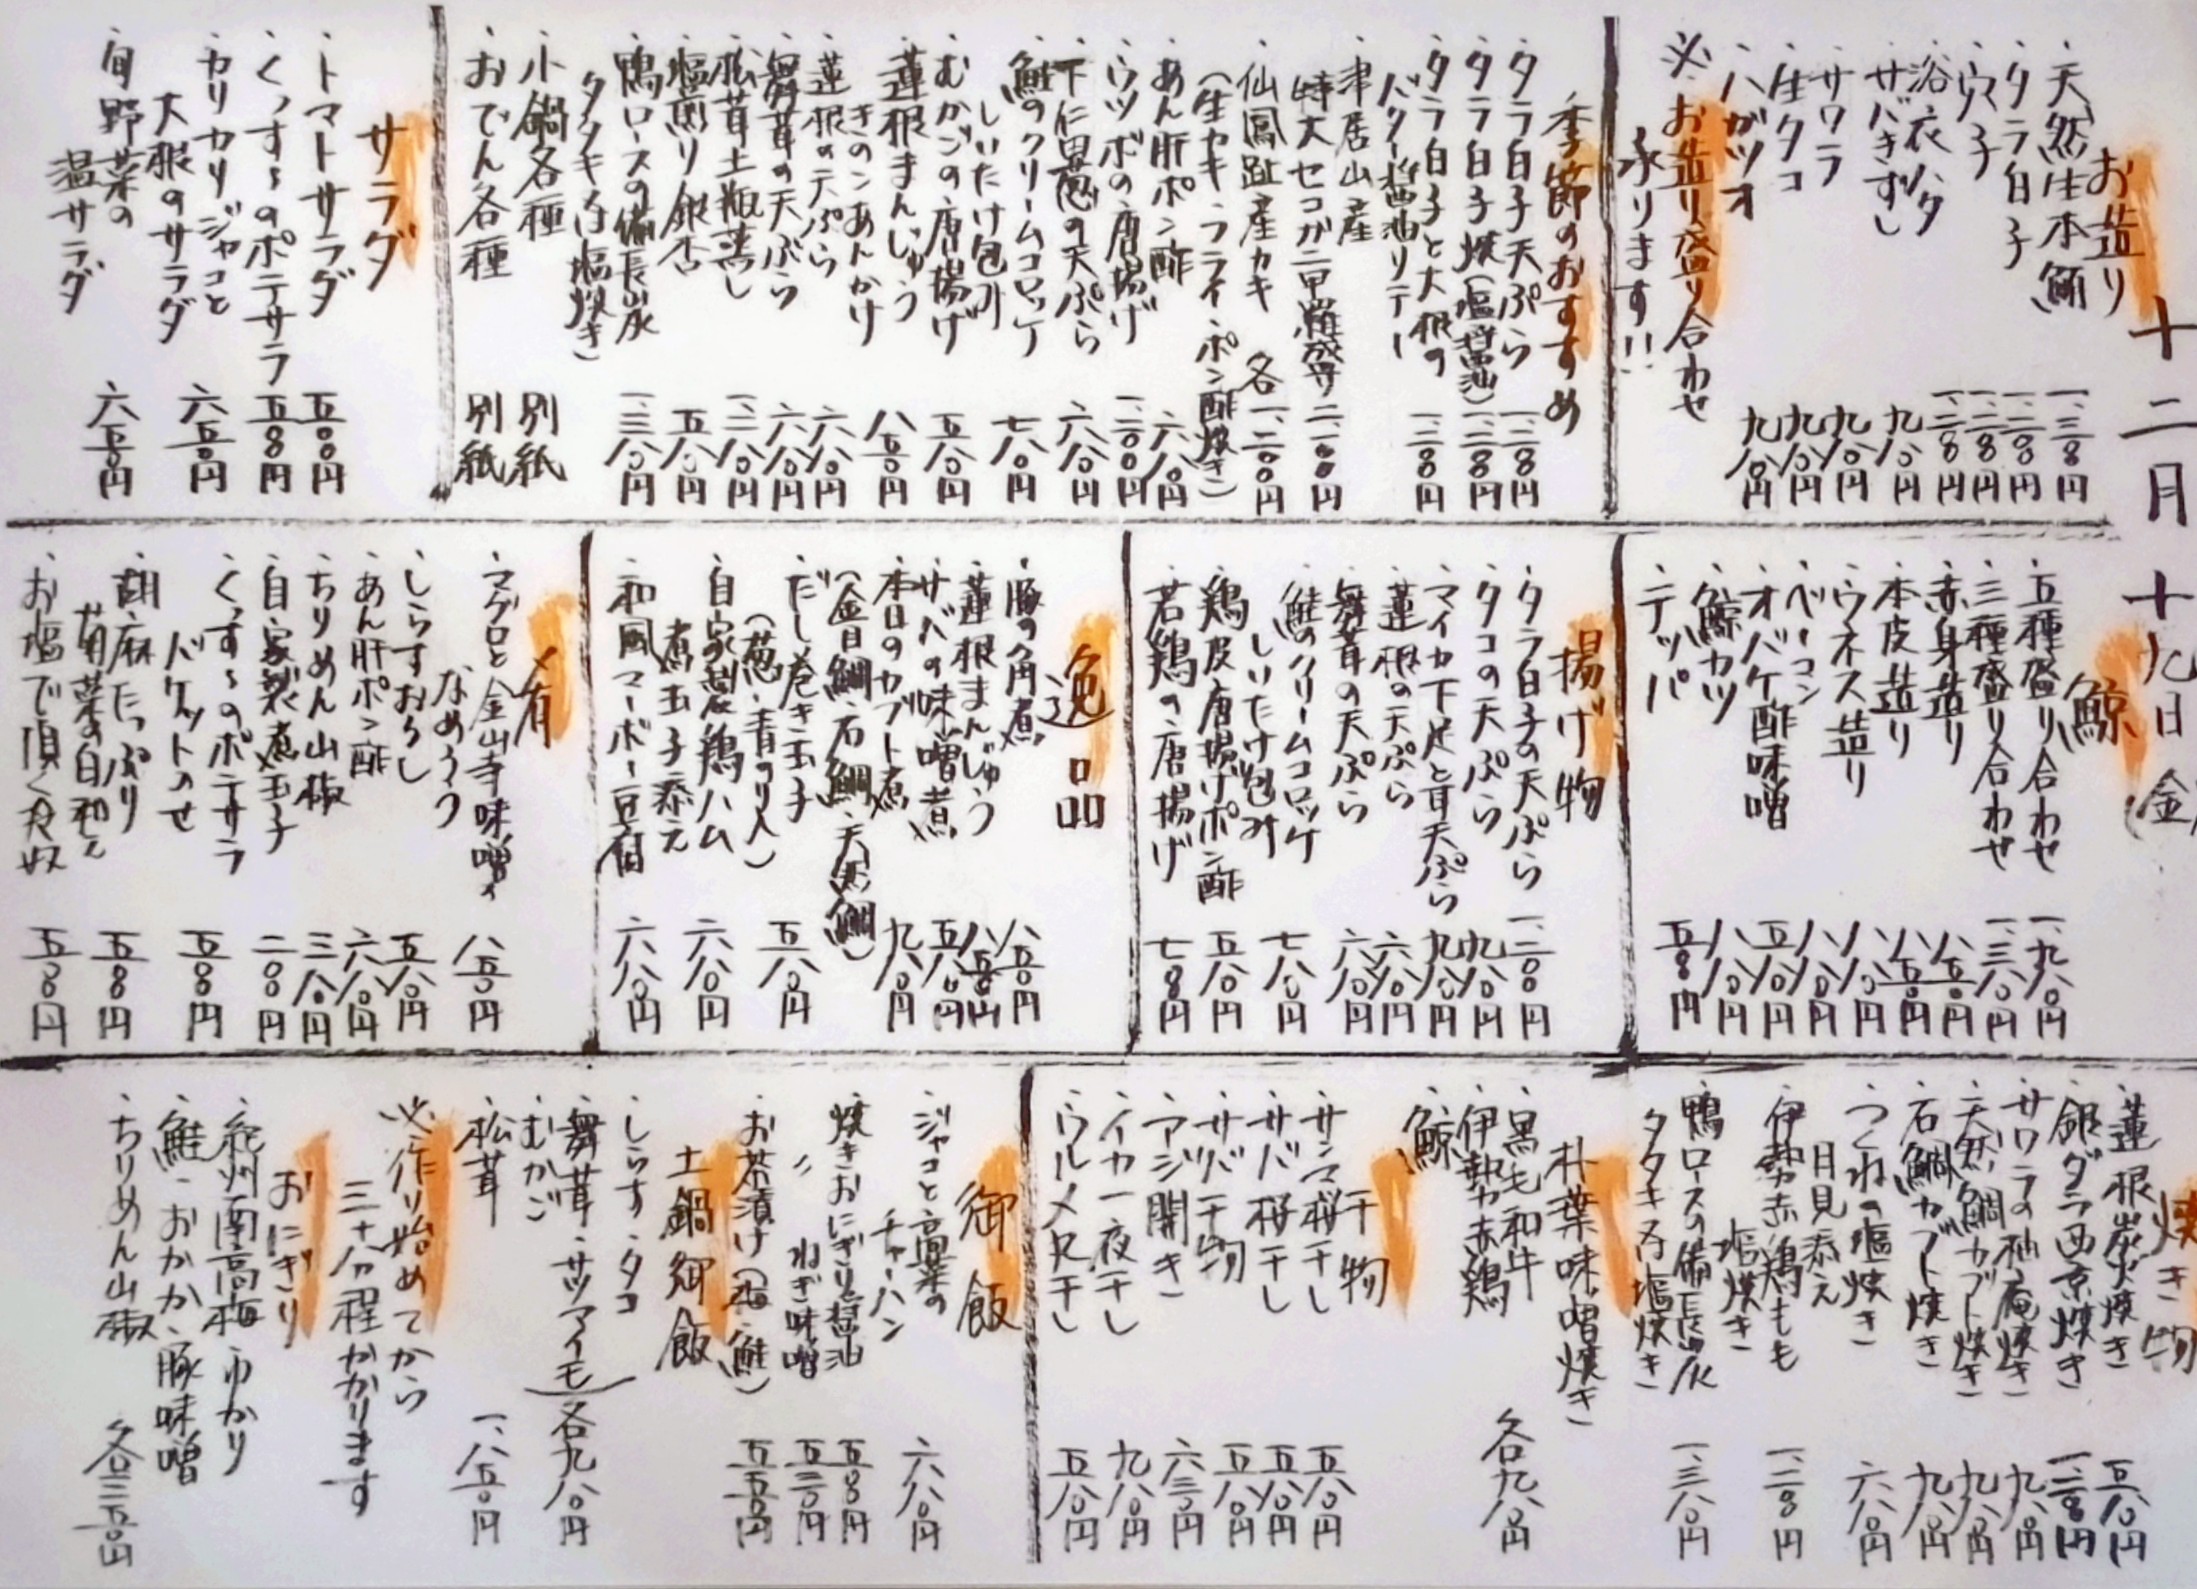 十二月十九日(金)
お造り
・天然生本鮪 一、三〇〇円
・タラ白子 一、二〇〇円
・ウマヅラ
・浴衣ハタ
・サバきずし 九八〇円
・サワラ 九八〇円
・生タコ 九八〇円
・ハガツオ 九八〇円
※お造り盛り合わせ
承ります!!
季節のおすすめ
・タラ白子天ぷら 一、二〇〇円
・タラ白子焼(塩・醤油) 一、二〇〇円
・タラ白子と大根の
バター醤油ソテー 一、二〇〇円
・津居山産
特大セコガニ甲羅盛り 二、一〇〇円
・仙鳳趾産カキ 各一、二〇〇円
(生カキ・フライ・ポン酢・焼き)
・あん肝ポン酢 六八〇円
・ウツボの唐揚げ 一、二〇〇円
・下仁田葱の天ぷら 六八〇円
・鮭のクリームコロッケ
しいたけ包み 七八〇円
・むかごの唐揚げ 五八〇円
・蓮根まんじゅう
きのこあんかけ 八五〇円
・蓮根の天ぷら 六八〇円
・舞茸の天ぷら 六八〇円
・松茸土瓶蒸し 一、三八〇円
・塩煎り銀杏 五八〇円
・鴨ロースの備長炭
タタキ風塩焼き 一、三八〇円
・小鍋各種 別紙
・おでん各種 別紙
サラダ
・トマトサラダ 五〇〇円
・くっすんのポテサラ 五〇〇円
・カリカリジャコと
大根のサラダ 六五〇円
・旬野菜の
温サラダ 六五〇円
鯨
・五種盛り合わせ 一、九八〇円
・三種盛り合わせ 一、三八〇円
・赤身造り 八五〇円
・本皮造り 八五〇円
・ウネス造り 八八〇円
・ベーコン 八八〇円
・オバケ酢味噌 五八〇円
・鯨カツ 八八〇円
・テッパ 五〇〇円
揚げ物
・タラ白子の天ぷら 一、二〇〇円
・タコの天ぷら 九八〇円
・マイカ下足と耳天ぷら 九八〇円
・蓮根の天ぷら 六八〇円
・舞茸の天ぷら 六八〇円
・鮭のクリームコロッケ
しいたけ包み 七八〇円
・鶏皮唐揚げポン酢 五八〇円
・若鶏の唐揚げ 七〇〇円
逸品
・豚の角煮 八五〇円
・蓮根まんじゅう 八五〇円
・サバの味噌煮 五八〇円
・本日のカブト煮 九八〇円
(金目鯛・石鯛・天然鯛)
・だし巻き玉子 五八〇円
(葱・青のり入)
・自家製鶏ハム
煮玉子添え 六八〇円
・和風マーボー豆腐 六八〇円
肴
・マグロと金山寺味噌の
なめろう 八五〇円
・しらすおろし 五八〇円
・あん肝ポン酢 六八〇円
・ちりめん山椒 三八〇円
・自家製煮玉子 二〇〇円
・くっすんのポテサラ
バケットのせ 五〇〇円
・胡麻たっぷり
菊菜の白和え 五〇〇円
・お塩で頂く冷奴 五〇〇円
焼き物
・蓮根炭火焼き 五八〇円
・銀ダラ西京焼き 一、二〇〇円
・サワラの柚庵焼き 九八〇円
・天然鯛カブト焼き 九八〇円
・石鯛カブト焼き 九八〇円
・つくねの塩焼き
月見添え 六八〇円
・伊勢赤鶏もも
塩焼き 一、二〇〇円
・鴨ロースの備長炭
タタキ風塩焼き 一、三八〇円
朴葉味噌焼き
・黒毛和牛
・伊勢赤鶏
・鯨 各九八〇円
干物
・サンマ桜干し 五八〇円
・サバ桜干し 五八〇円
・サバ干物 五八〇円
・アジ開き 六三〇円
・イカ一夜干し 九八〇円
・ウルメ丸干し 五八〇円
御飯
・ジャコと高菜の
チャーハン 六八〇円
・焼きおにぎり醤油 五〇〇円
〃 ねぎ味噌 五三〇円
・お茶漬け(梅・鮭) 五五〇円
土鍋御飯
・しらす・タコ
・舞茸・サツマイモ
・むかご 各九八〇円
・松茸 一、八五〇円
※作り始めてから
三十分程かかります
おにぎり
・紀州南高梅・ゆかり
・鮭・おかか・豚味噌
・ちりめん山椒 各三五〇円